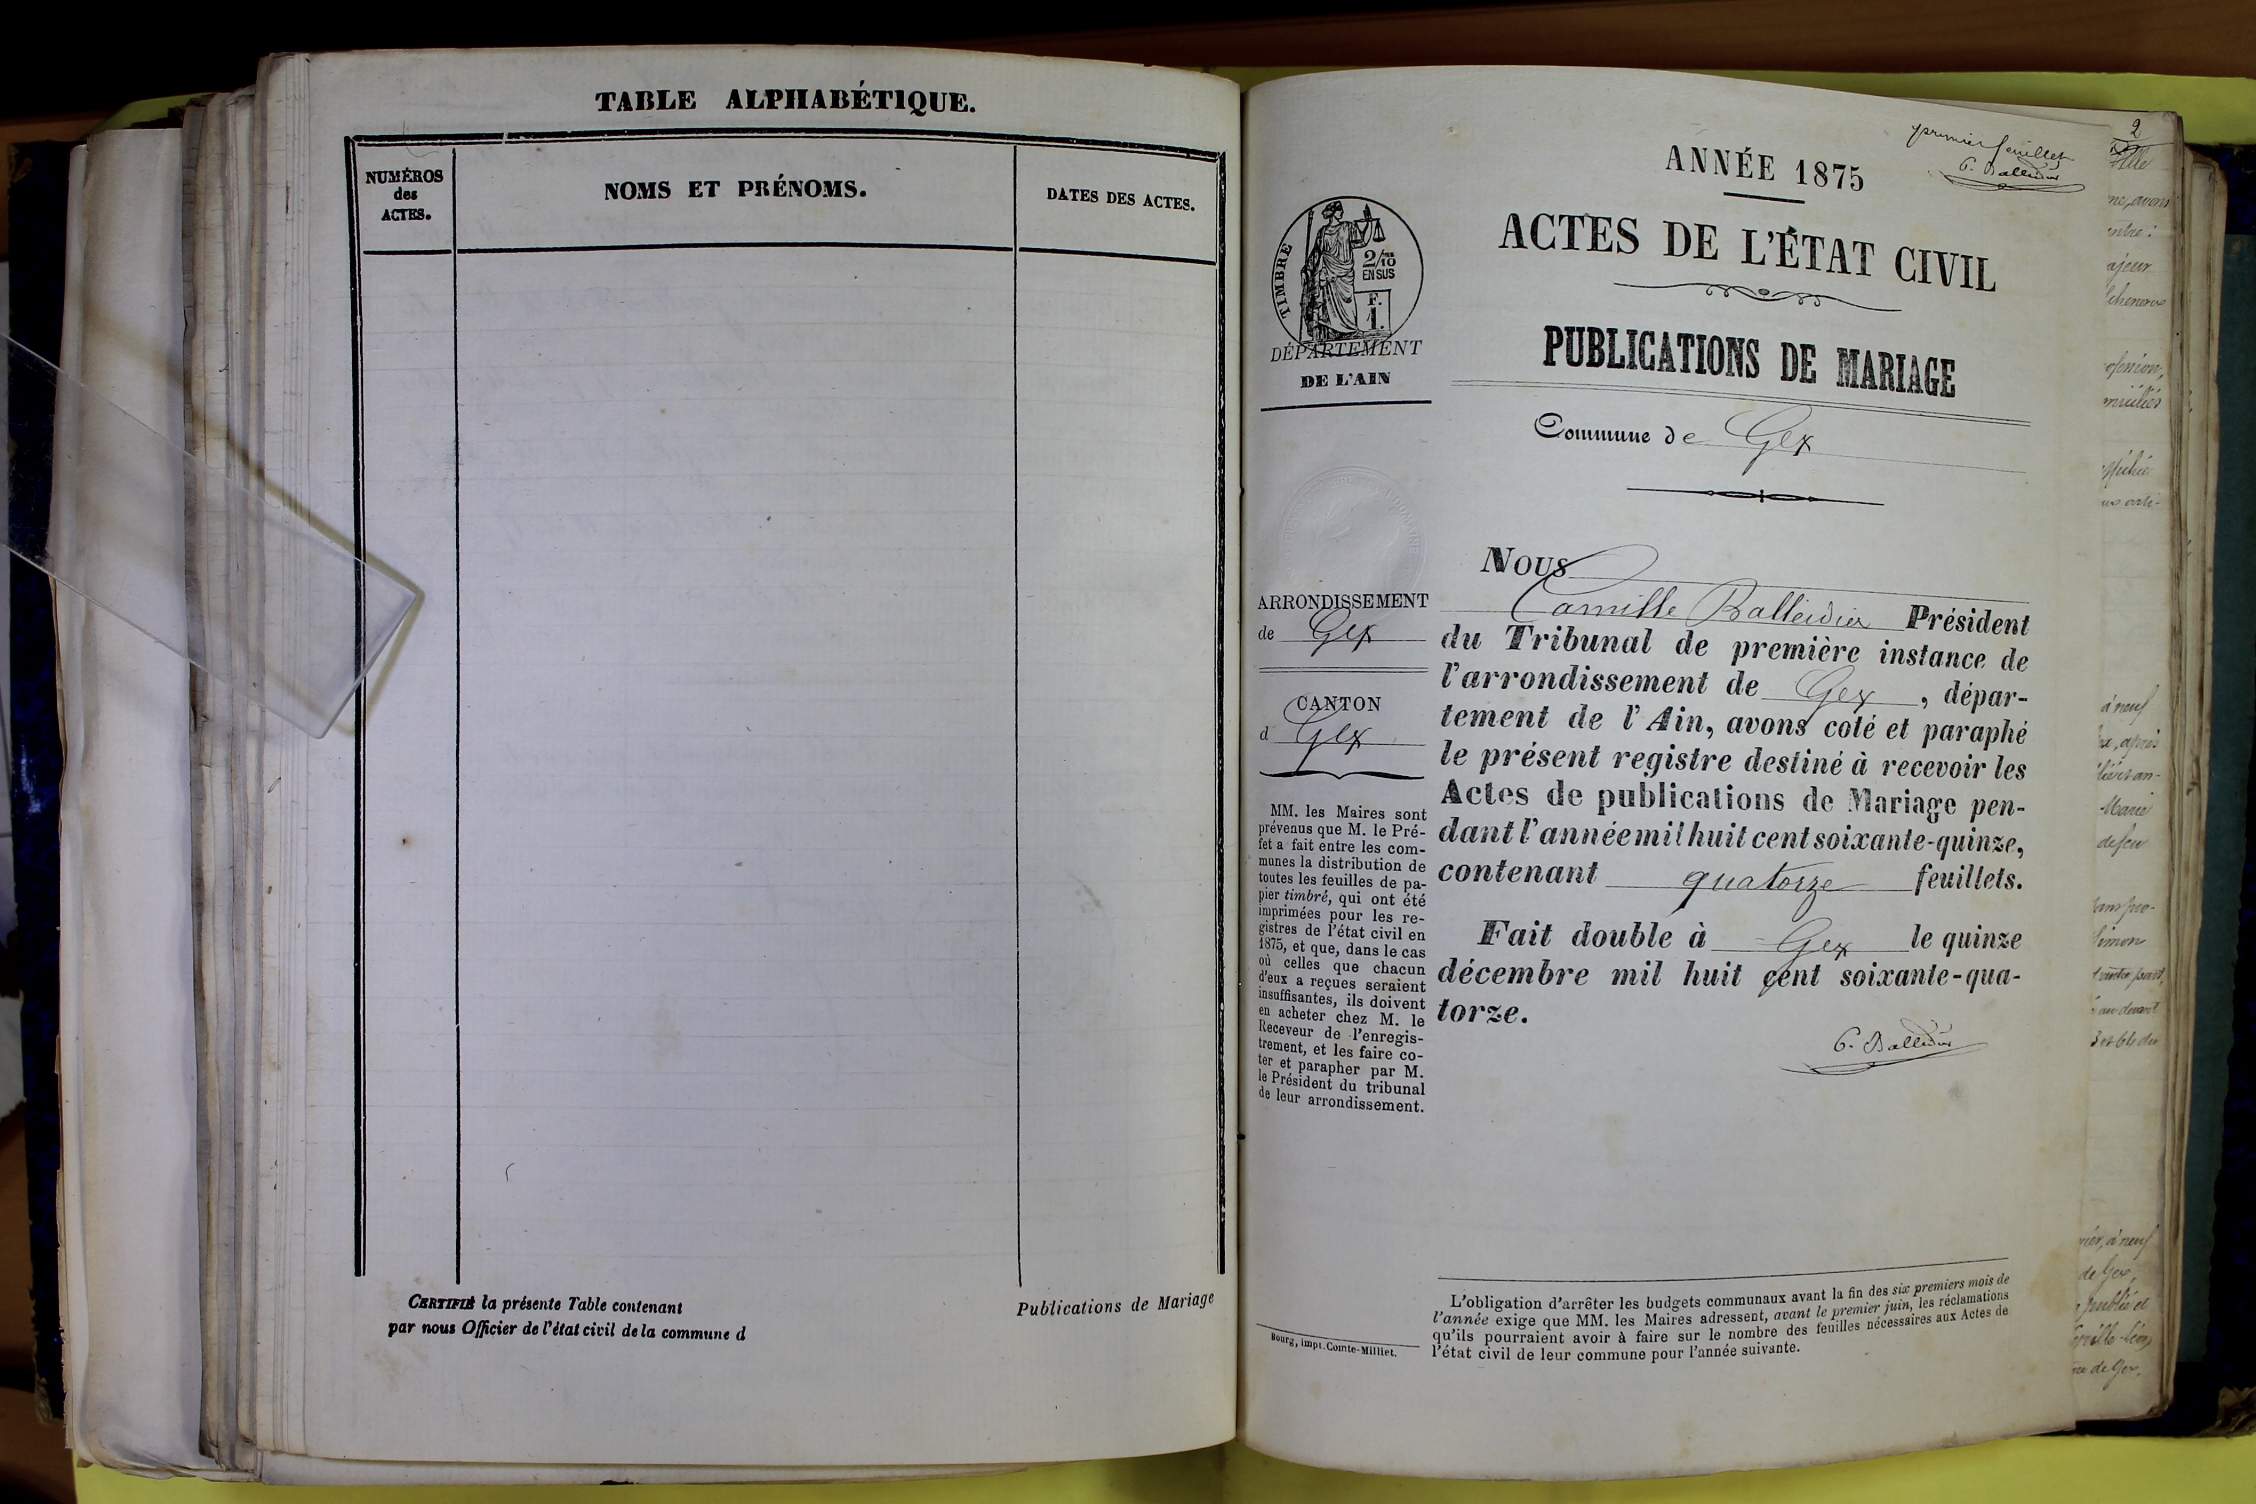 TABLE ALPHABÉTIQUE.
NUMÉROS
des
ACTES.
NOMS ET PRÉNOMS.
DATES DES ACTES.
CERTIFIÉ la présente Table contenant
par nous Officier de l'état civil de la commune d
Publications de Mariage
premier feuillet
C. Balleidier
ANNÉE 1875
ACTES DE L'ÉTAT CIVIL
PUBLICATIONS DE MARIAGE
Commune de Gex
TIMBRE
2/10
EN SUS
F.
1.
DÉPARTEMENT
DE L'AIN
ARRONDISSEMENT
de Gex
CANTON
d Gex
MM. les Maires sont
prévenus que M. le Pré-
fet a fait entre les com-
munes la distribution de
toutes les feuilles de pa-
pier timbré, qui ont été
imprimées pour les re-
gistres de l'état civil en
1875, et que, dans le cas
où celles que chacun
d'eux a reçues seraient
insuffisantes, ils doivent
en acheter chez M. le
Receveur de l'enregis-
trement, et les faire co-
ter et parapher par M.
le Président du tribunal
de leur arrondissement.
Bourg, impr. Comte-Milliet.
NOUS
Camille Balleidier Président
du Tribunal de première instance de
l'arrondissement de Gex, dépar-
tement de l'Ain, avons coté et paraphé
le présent registre destiné à recevoir les
Actes de publications de Mariage pen-
dant l'année mil huit cent soixante-quinze,
contenant quatorze feuillets.
Fait double à Gex le quinze
décembre mil huit cent soixante-qua-
torze.
C. Balleidier
L'obligation d'arrêter les budgets communaux avant la fin des six premiers mois de
l'année exige que MM. les Maires adressent, avant le premier juin, les réclamations
qu'ils pourraient avoir à faire sur le nombre des feuilles nécessaires aux Actes de
l'état civil de leur commune pour l'année suivante.
2